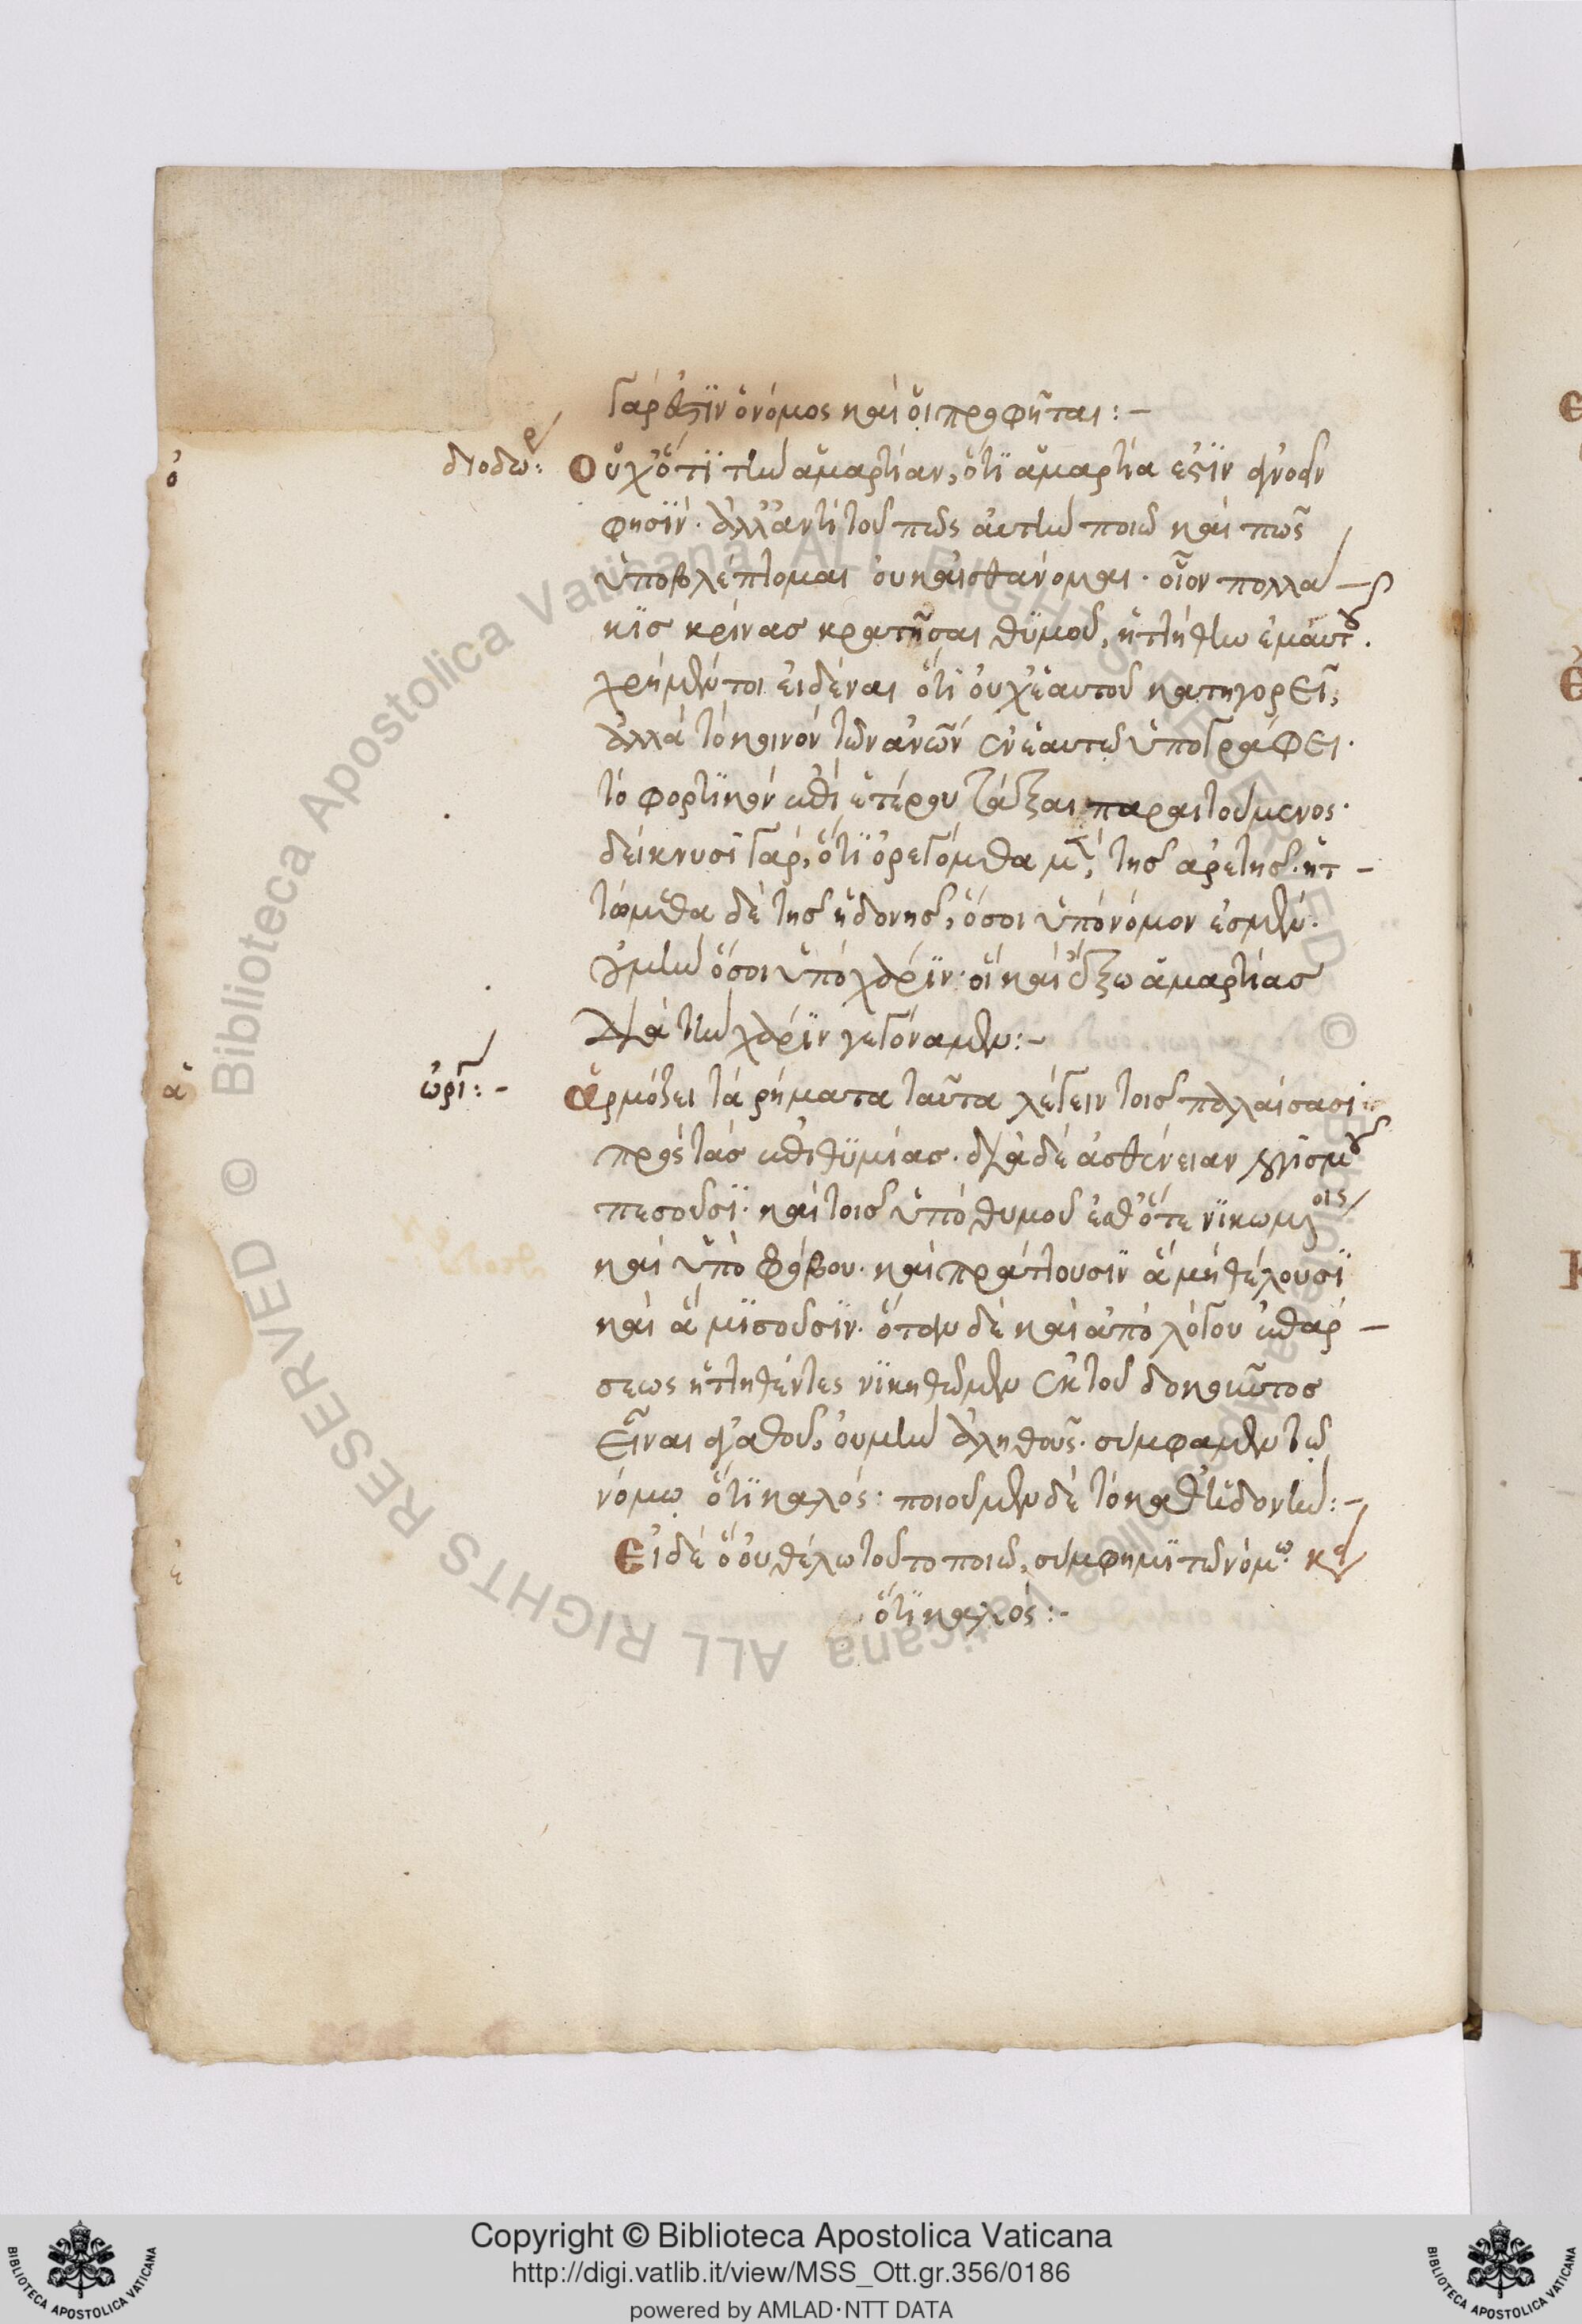 γάρ ἐστιν ὁ νόμος καὶ οἱ προφῆται:-
διοδώρ: Οὐχ ὅτι τὴν ἁμαρτίαν, ὅτι ἁμαρτία ἐστὶν ἀγνοῶν
ὁ
φησίν. ἀλλ' ἀντὶ τοῦ πῶς αὐτὴν ποιῶ καὶ πῶς
ὑποβλέπτομαι οὐκ αἰσθάνομαι. οἷον πολλά-
κις κρίνας κρατῆσαι θυμοῦ, ἡττήθην ἐμαυτοῦ.
χρὴ μέντοι εἰδέναι ὅτι οὐχ ἑαυτοῦ κατηγορεῖ,
ἀλλὰ τὸ κοινὸν τῶν ἀνων ἐν ἑαυτῷ ὑπογράφει.
τὸ φορτικὸν ἐπὶ ἑτέρου τάξαι παραιτούμενος.
δείκνυσι γάρ, ὅτι ὀρεγόμεθα μὲν τῆς ἀρετῆς. ἡτ-
τώμεθα δὲ τῆς ἡδονῆς, ὅσοι ὑπὸ νόμον ἐσμέν.
οὐ μὴν ὅσοι ὑπὸ χάριν. οἳ καὶ ἔξω ἁμαρτίας
διὰ τὴν χάριν γεγόναμεν:-
ὠριγ:-
ἁρμόζει τὰ ῥήματα ταῦτα λέγειν τοῖς παλαίσασι
α
πρὸς τὰς ἐπιθυμίας. διὰ δὲ ἀσθένειαν λογισμοῦ
πεσοῦσι. καὶ τοῖς ὑπὸ θυμοῦ ἐσθ' ὅτε νικωμένοις
καὶ ὑπὸ φόβου. καὶ πράττουσιν ἃ μὴ θέλουσι
καὶ ἃ μισοῦσιν. ὅταν δὲ καὶ ἀπὸ λόγου ἐπάρ-
σεως ἡττηθέντες νικηθῶμεν ἐκ τοῦ δοκοῦντος
εἶναι ἀγαθοῦ, οὐ μὴν ἀληθοῦς. σύμφαμεν τῷ
νόμῳ ὅτι καλός: ποιοῦμεν δὲ τὸ καθ' ἡδονήν:-
Εἰ δὲ ὃ οὐ θέλω τοῦτο ποιῶ, σύμφημι τῷ νόμῳ
ε
ὅτι καλός:-
Copyright © Biblioteca Apostolica Vaticana
http://digi.vatlib.it/view/MSS_Ott.gr.356/0186
powered by AMLAD·NTT DATA